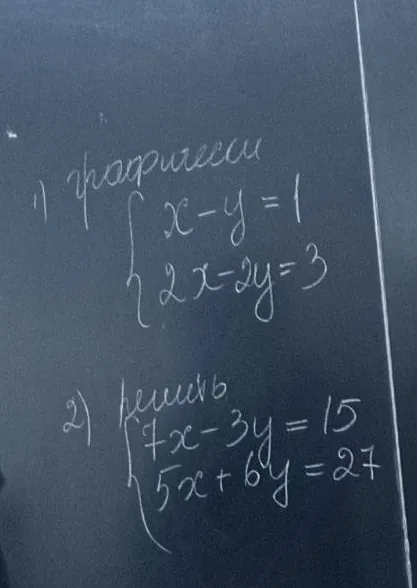 1) графически
x - y = 1
2x - 2y = 3
2) решить
7x - 3y = 15
5x + 6y = 27